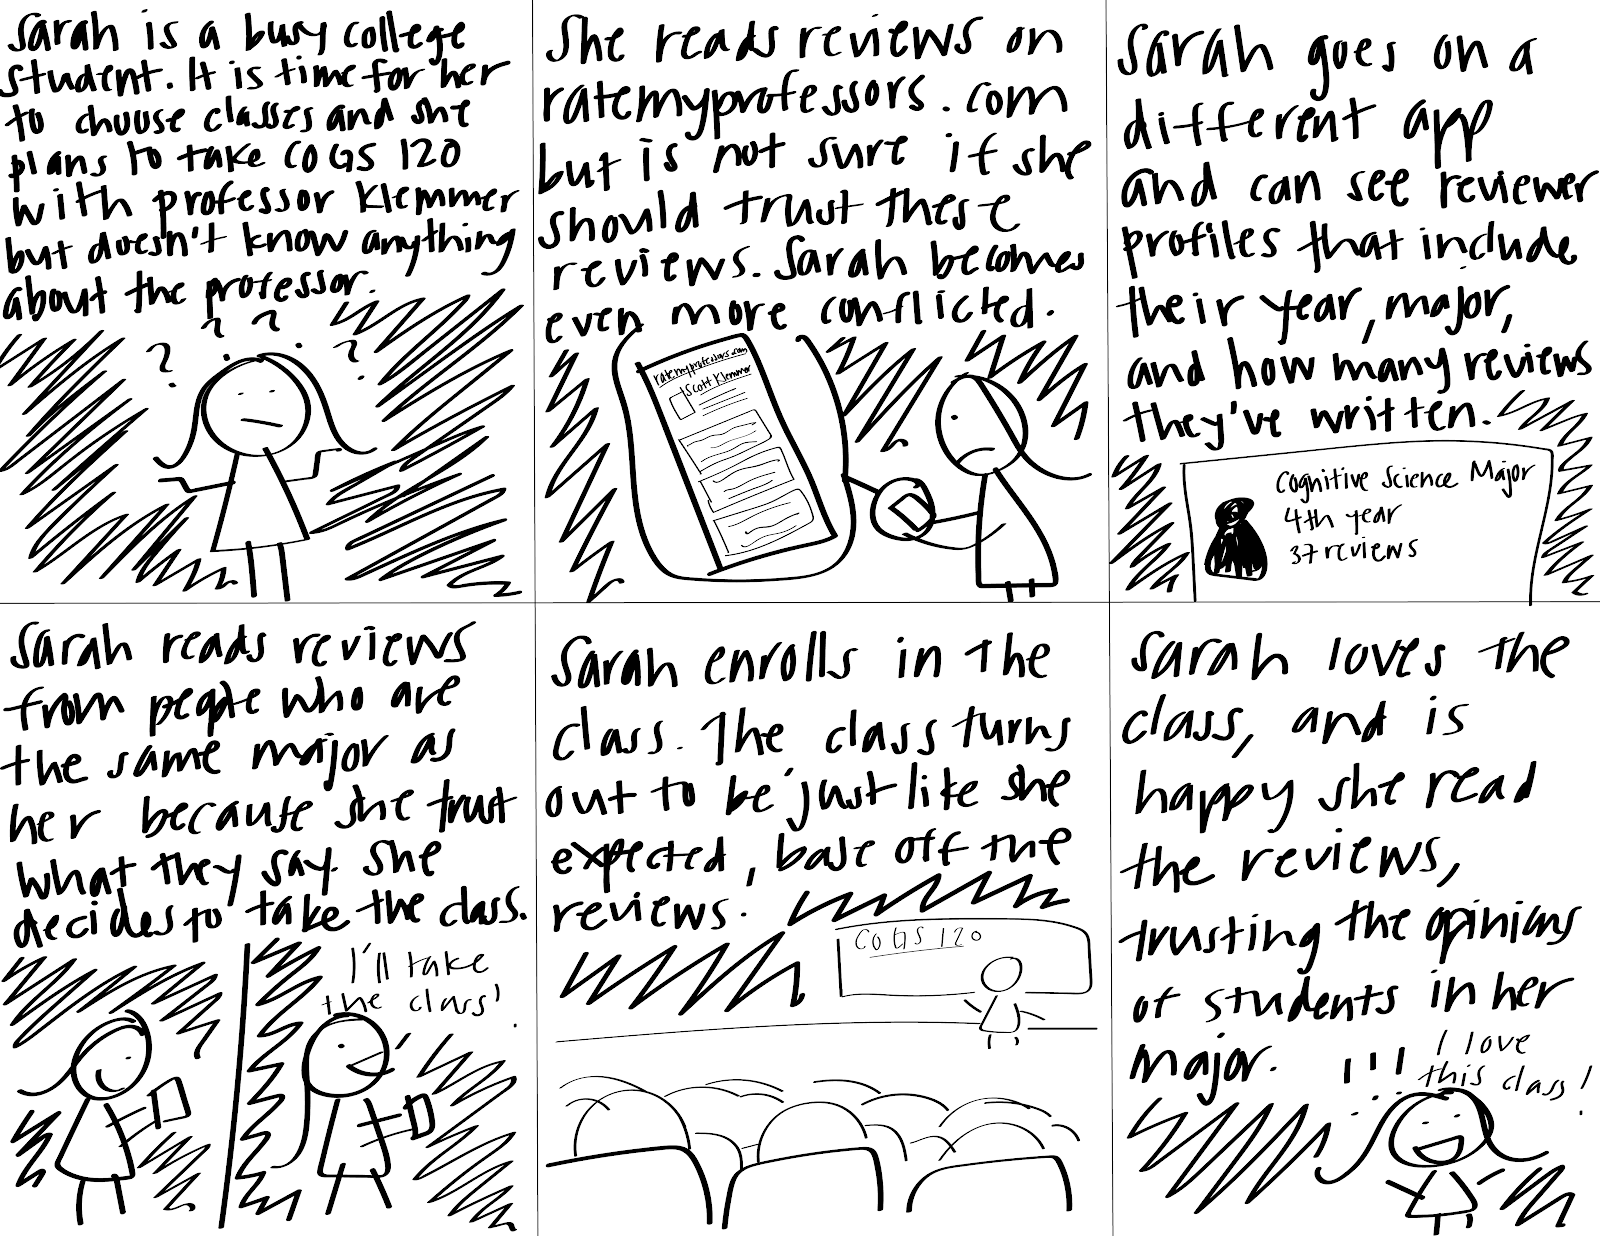 Sarah is a busy college
student. It is time for her
to choose classes and she
plans to take COGS 120
with professor Klemmer
but doesn't know anything
about the professor.
? ? ? ?
She reads reviews on
ratemyprofessors.com
but is not sure if she
should trust these
reviews. Sarah becomes
even more conflicted.
ratemyprofessors.com
Scott Klemmer
Sarah goes on a
different app
and can see reviewer
profiles that include
their year, major,
and how many reviews
they've written.
Cognitive Science Major
4th year
37 reviews
Sarah reads reviews
from people who are
the same major as
her because she trust
what they say. She
decides to take the class.
I'll take
the class!
Sarah enrolls in the
class. The class turns
out to be just like she
expected, base off the
reviews.
COGS 120
Sarah loves the
class, and is
happy she read
the reviews,
trusting the opinions
of students in her
major.
!!!
I love
this class!